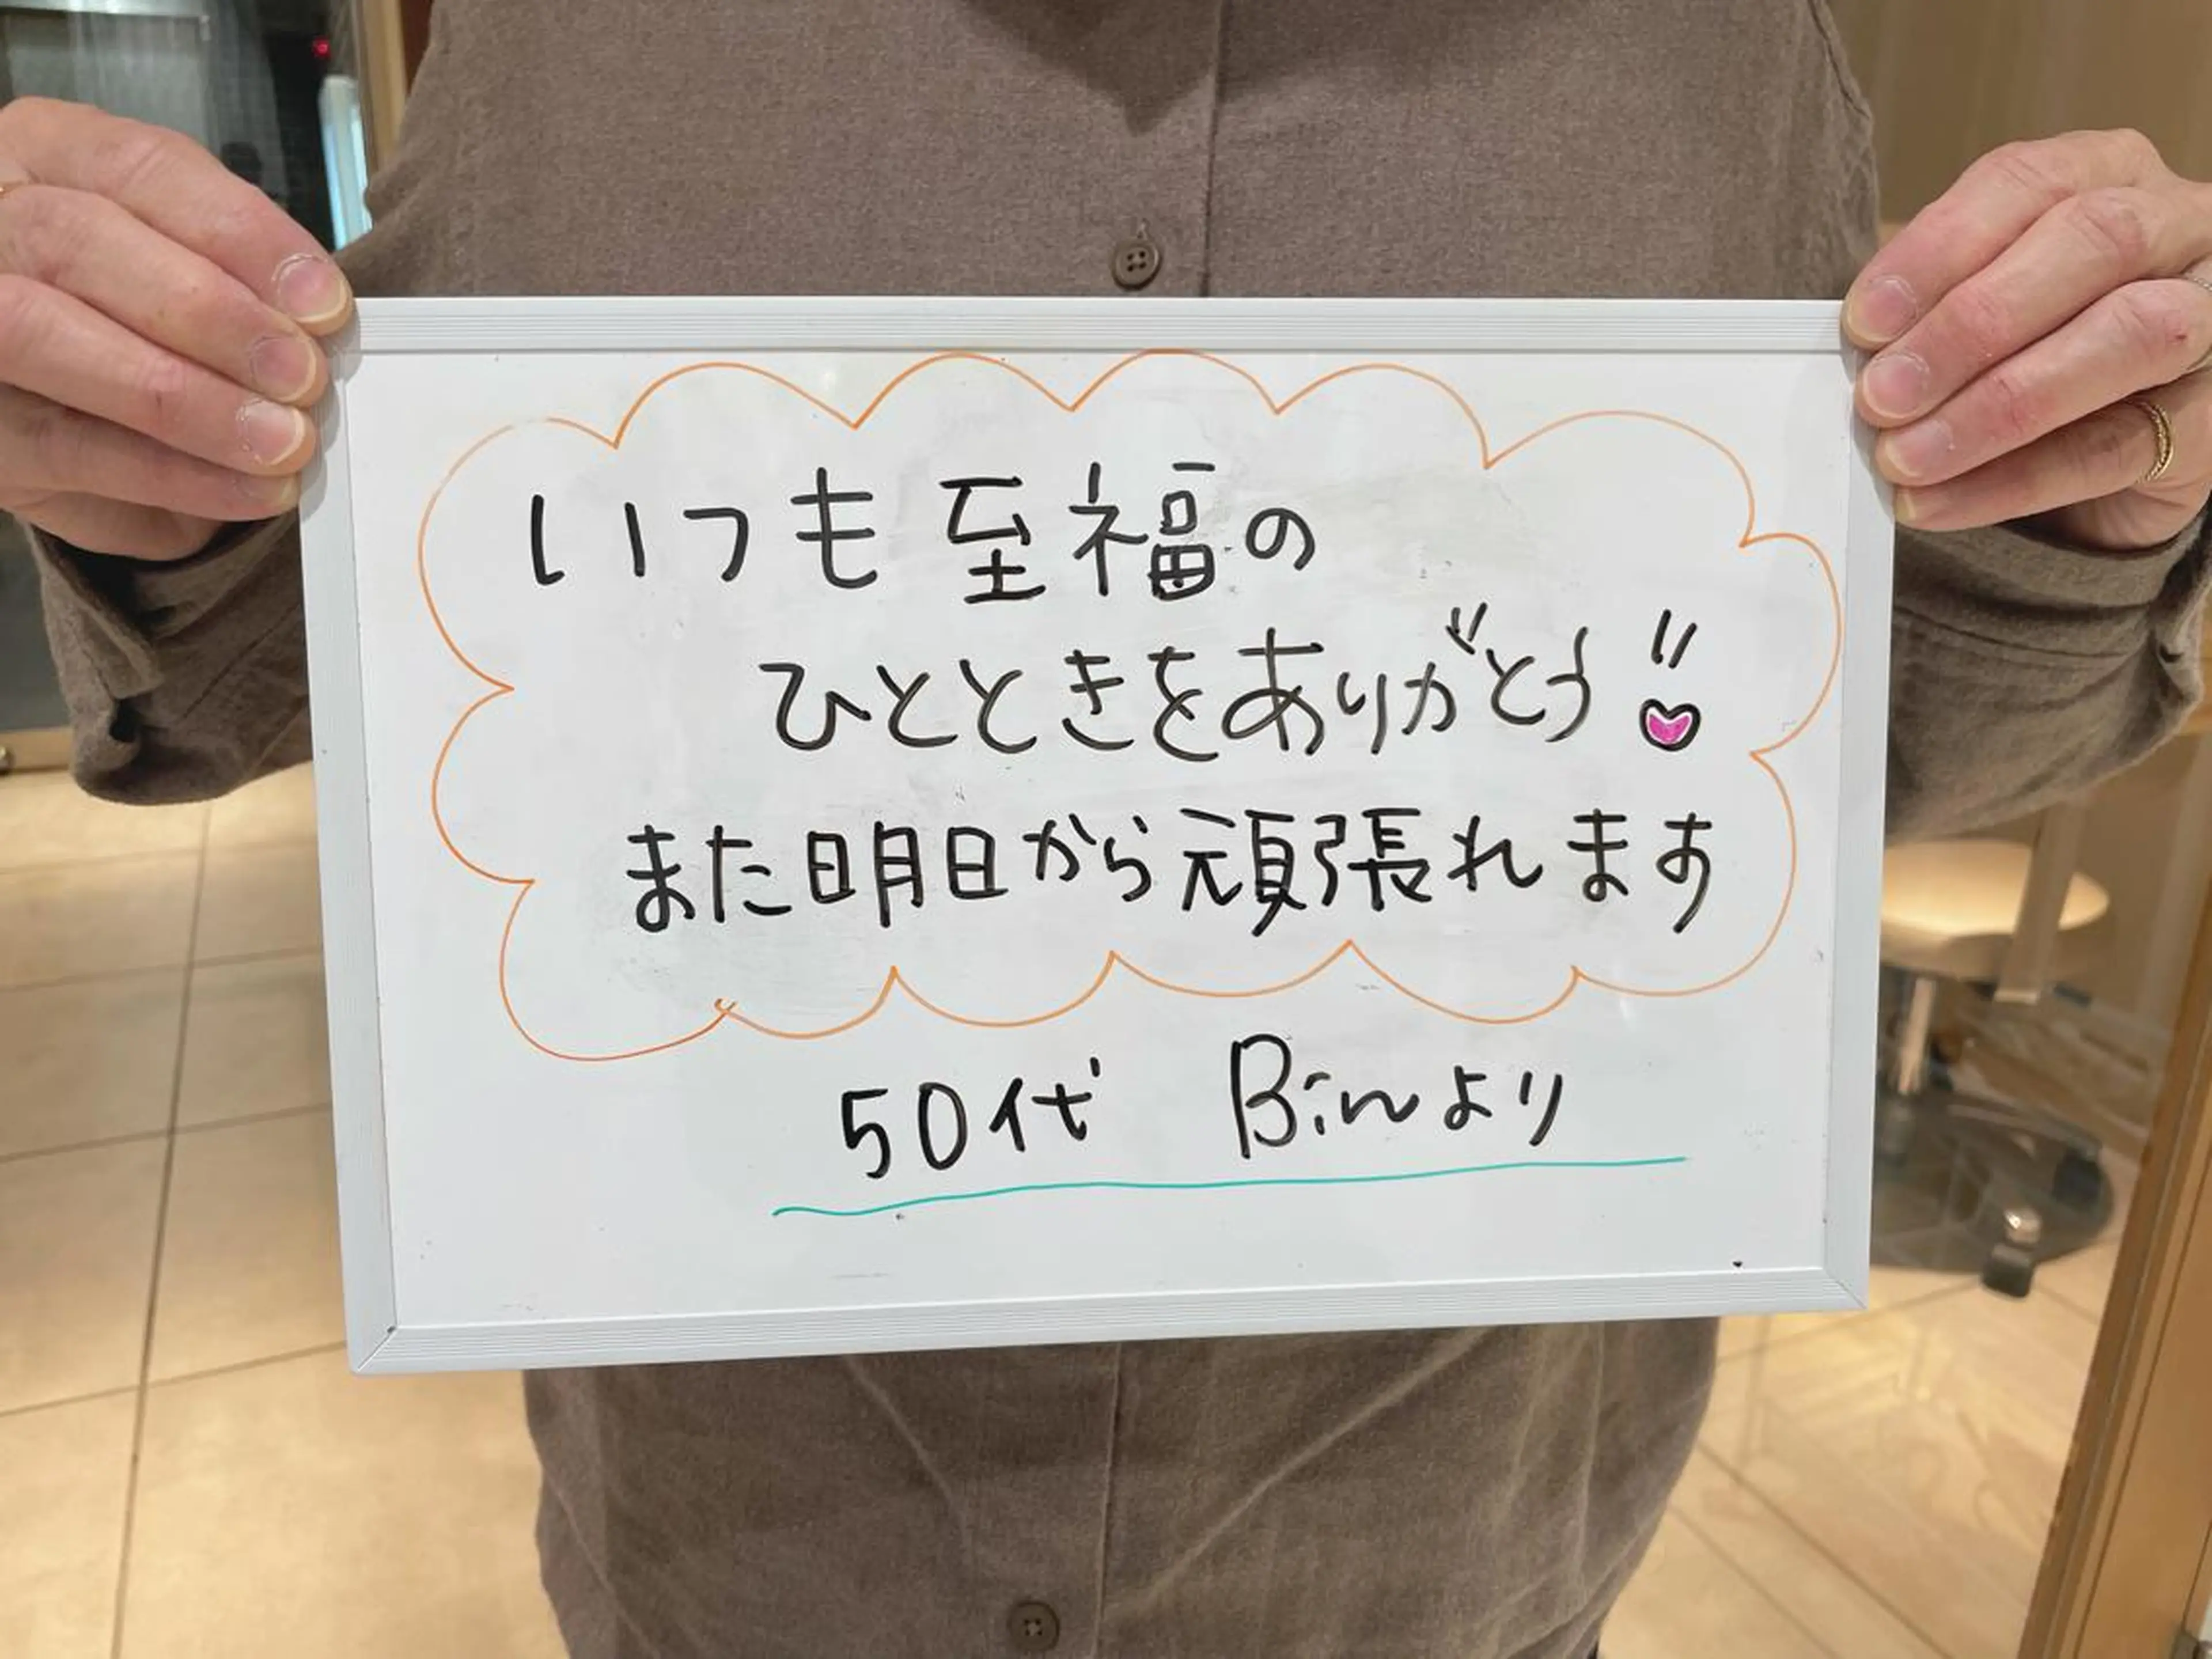 いつも至福の
ひとときをありがとう!!
また明日から頑張れます
50代 Binより